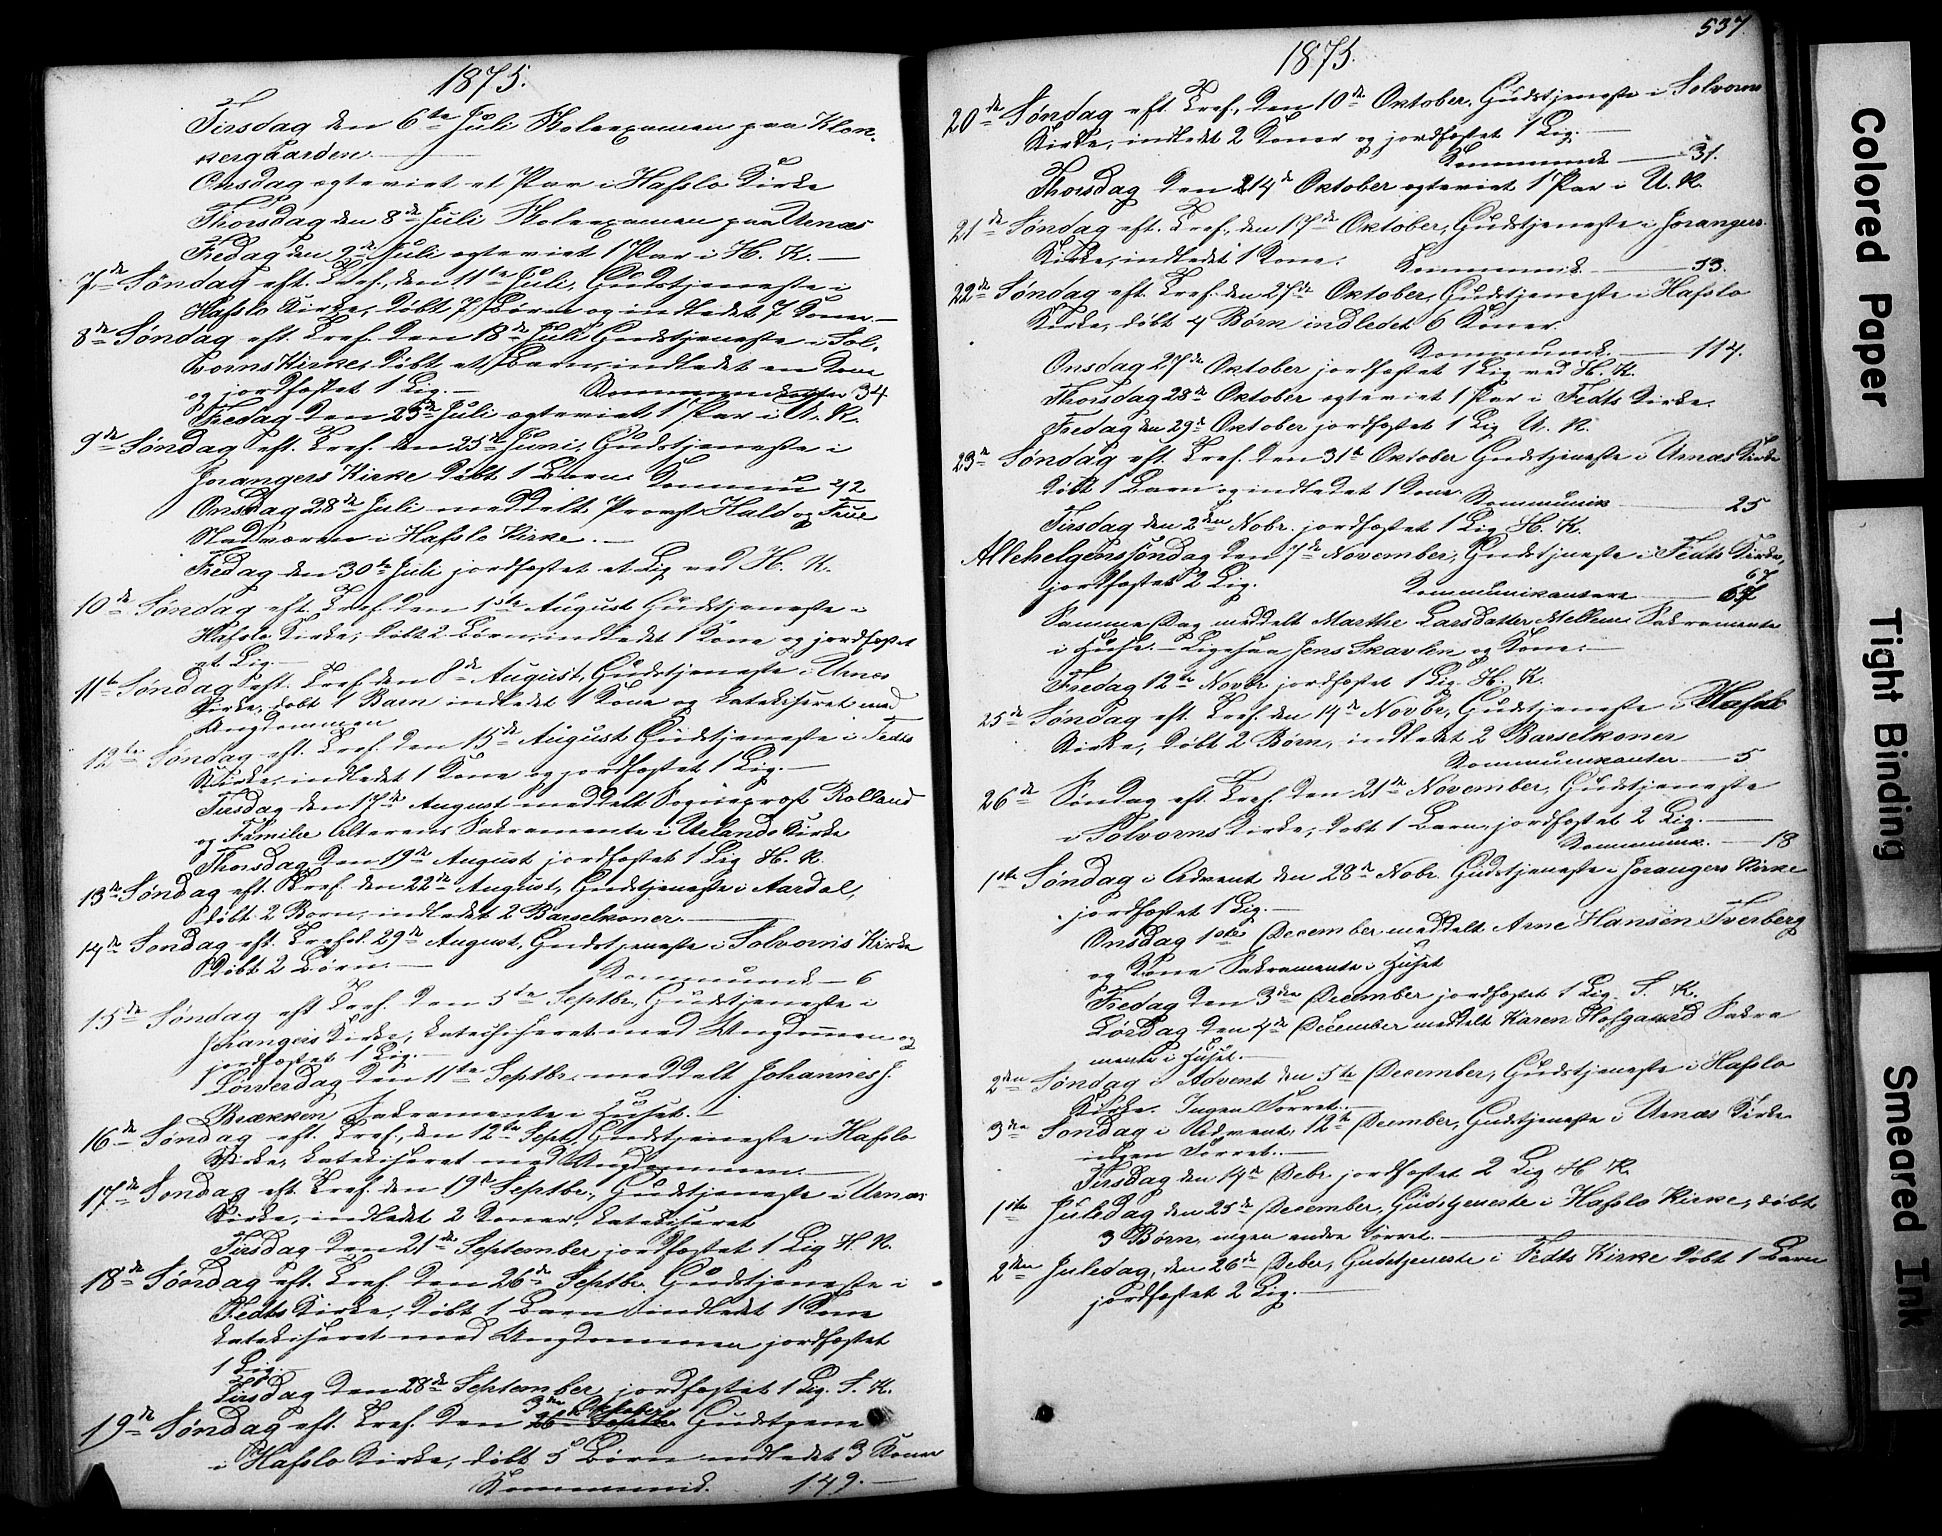 1875.
Tirsdag den 6te Juli Skoleexamen paa
Onsdag egteviet et Par i Hafslo Kirke
Thorsdag den 8de Juli Skoleexamen paa Urnæs
Fredag den 9de Juli egteviet 1 Par i H. K. —
7de Søndag eft. Tref., den 11te Juli, Gudstjeneste i
Hafslo Kirke, døbt 7 Børn og indledet 7 Koner. —
8de Søndag eft. Tref. den 18de Juli Gudstjeneste i Sol-
vorns Kirke, døbt et Barn, indledet en Kone
og jordfæstet 1 Lig. — 34
Fredag den 23de Juli egteviet 1 Par i U. K.
9de Søndag eft. Tref. den 25de Juni, Gudstjeneste i
Jorangers Kirke døbt 1 Barn. Kommu 42
Onsdag 28de Juli meddelt Provst Hald og Frue
Nadveren i Hafslo Kirke. —
Fredag den 30te Juli jordfæstet et Lig ved H. K.
10de Søndag eft. Tref. den 1ste August Gudstjeneste i
Hafslo Kirke, døbt 2 Børn, indledet 1 Kone og jordfæstet
et Lig. —
11te Søndag eft. Tref. den 8de August, Gudstjeneste i Urnes
Kirke, døbt 1 Barn indledet 1 Kone og katekiseret med
Ungdommen
12te Søndag eft. Tref. den 15de August Gudstjeneste i Fedts
Kirke, indledet 1 Kone og jordfæstet 1 Lig. —
Tirsdag den 17de August meddelt Sogneprest Rolland
og Familie Alterens Sakramente i Kirke
Thorsdag den 19de August jordfæstet 1 Lig H. K.
13de Søndag eft. Tref. den 22de August, Gudstjeneste i Aardal,
døbt 2 Børn, indledet 2 Barselkoner. —
14de Søndag eft. Tref. d. 29de August, Gudstjeneste i Solvorns Kirke
døbt 2 Børn. — Kommunik — 6
15de Søndag eft Tref. den 5te Septbr, Gudstjeneste i
Jorangers Kirke, katechiseret med Ungdommen og
jordfæstet 1 Lig. —
Løverdag den 11te Septbr. meddelt Johannes J.
Brækken Sakramente i Huset. —
16de Søndag eft. Tref., den 12te Sept., Gudstjeneste i Hafslo
Kirke, katekiseret med Ungdommen. —
17de Søndag eft. Tref. den 19de Septbr., Gudstjeneste i Urnæs
Kirke, indledet 2 Koner, katekiseret
Tirsdag den 21de September jordfæstet 1 Lig H. K.
18de Søndag eft. Tref. den 26de Septbr. Gudstjeneste i
Fedts Kirke, døbt 1 Barn indledet 1 Kone
katekiseret med Ungdommen jordfæstet
1 Lig. —
Tirsdag den 28de September jordfæstet 1 Lig. S. K.
3die Oktober
19de Søndag eft. Tref. den 26de Septbr Gudstjene
i Hafslo Kirke, døbt 5 Børn indledet 3 Koner
Kommunik. 149. —
537.
1875.
20de Søndag eft. Tref., den 10de Oktober, Gudstjeneste i Solvorns
Kirke, indledet 2 Koner og jordfæstet 1 Lig. —
Kommunik — 31.
Thorsdag den 14de Oktober egteviet 1 Par i U. K.
21de Søndag eft. Tref., den 17de Oktober, Gudstjeneste i Jorangers
Kirke, indledet 1 Kone. Kommunik. — 53.
22de Søndag eft. Tref. den Oktober, Gudstjeneste i Hafslo
Kirke, døbt 4 Børn indledet 6 Koner.
Kommunik. — 114.
Onsdag 27de Oktober jordfæstet 1 Lig ved H. K.
Thorsdag 28de Oktober egteviet 1 Par i Fedts Kirke.
Fredag den 29de Oktober jordfæstet 1 Lig U. K.
23de Søndag eft. Tref. den 31te Oktober Gudstjeneste i Urnæs Kirke
døbt 1 Barn og indledet 1 Kone. Kommunik — 25
Tirsdag den 2den Nobr. jordfæstet 1 Lig H. K.
Allehelgenssøndag den 7de November, Gudstjeneste i Fedts Kirke,
jordfæstet 2 Lig. Kommunikantere — 67
Samme Dag meddelt Marthe Larsdatter Mellum Sakramente
i Huse. — Ligesaa Jens Skavlen og Kone. —
Fredag 12te Novbr jordfæstet 1 Lig. H. K.
25de Søndag eft. Tref. den 14de Novbr, Gudstjeneste i Hafslo
Kirke, døbt 2 Børn, indledet 2 Barselkoner
Kommunikanter — 5
26de Søndag eft. Tref. den 21de November, Gudstjeneste
i Solvorns Kirke, døbt 1 Barn, jordfæstet 2 Lig. —
Kommunik. — 18
1ste Søndag i Advent den 28de Nobr. Gudstjeneste i Jorangers Kirke
jordfæstet 1 Lig. —
Onsdag 1ste December meddelt Arne Hansen Tverberg
og Kone Sakramente i Huset
Fredag den 3die December jordfæstet 1 Lig. S. K.
Lørdag den 4de December meddelt Karen Hofgaard Sakra
mente i Huset. —
2den Søndag i Advent den 5te December, Gudstjeneste i Hafslo
Kirke. Ingen Forret. —
3die Søndag i Advent, 12te December, Gudstjeneste i Urnæs Kirke
ingen Forret. —
Tirsdag den 14de Debr. jordfæstet 2 Lig H K.
1ste Juledag den 25de December, Gudstjeneste i Hafslo Kirke, døbt
3 Børn, ingen andre Forret. —
2den Juledag, den 26de Deber, Gudstjeneste i Fedts Kirke døbt 1 Barn
jordfæstet 2 Lig. —
Colored Paper
Tight Binding
Smeared Ink